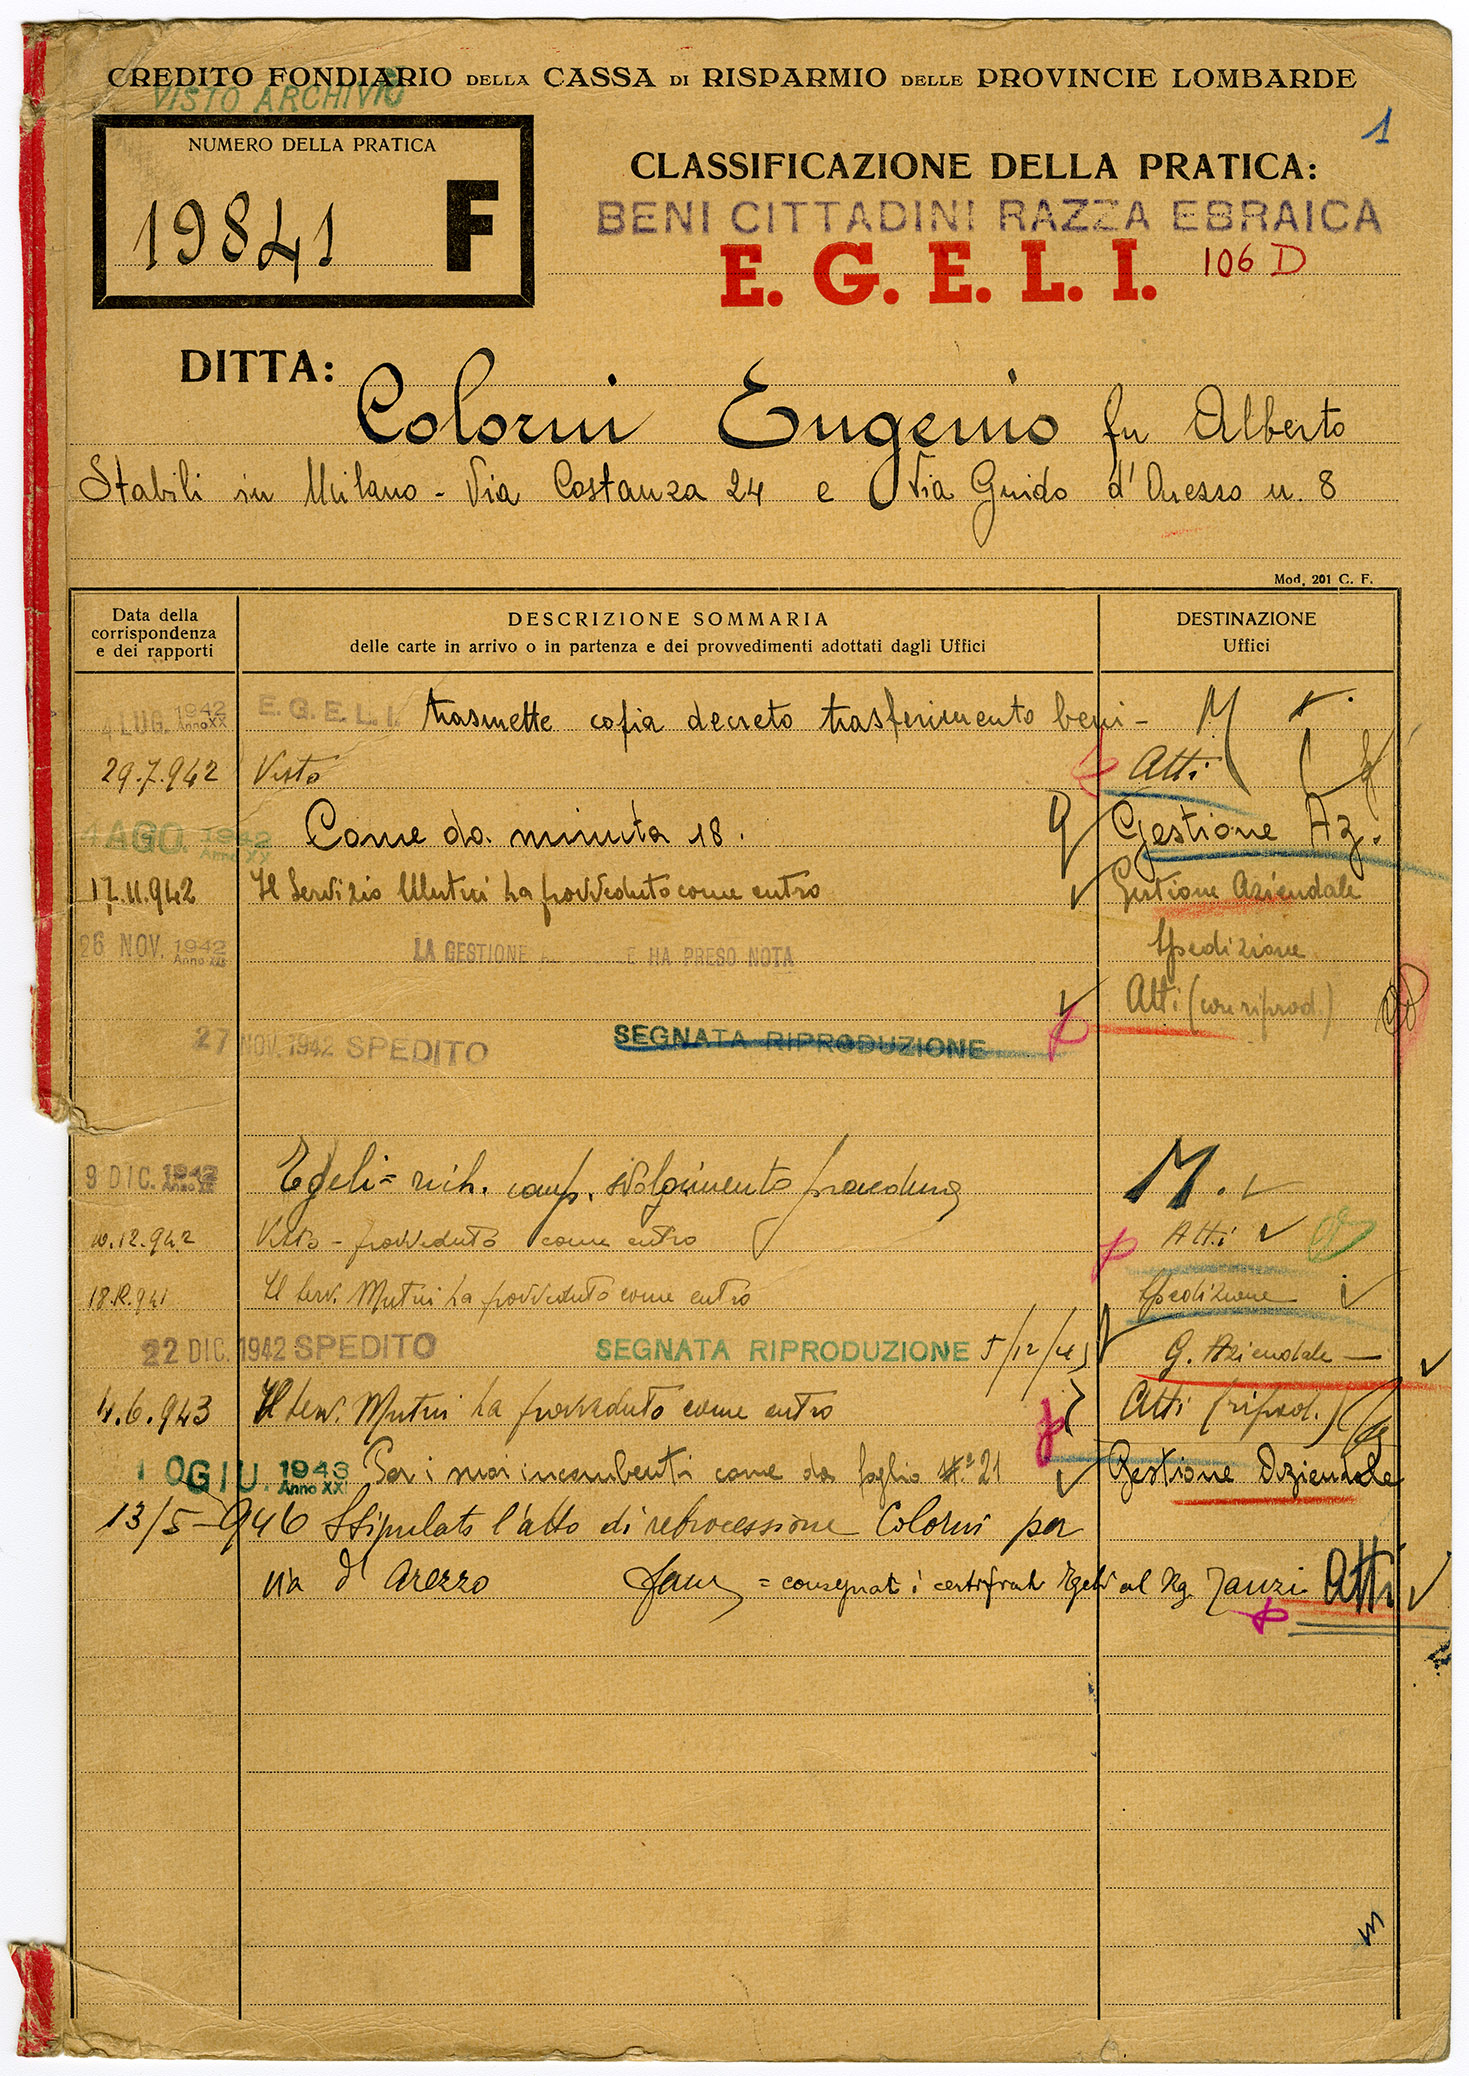 CREDITO FONDIARIO DELLA CASSA DI RISPARMIO DELLE PROVINCIE LOMBARDE
VISTO ARCHIVIO
1
NUMERO DELLA PRATICA
19841 F
CLASSIFICAZIONE DELLA PRATICA:
BENI CITTADINI RAZZA EBRAICA
E. G. E. L. I. 106 D
DITTA: Colorni Eugenio fu Alberto
Stabili in Milano - Via Costanza 24 e Via Guido d'Arezzo n. 8
Mod. 201 C. F.
Data della corrispondenza e dei rapporti
DESCRIZIONE SOMMARIA
delle carte in arrivo o in partenza e dei provvedimenti adottati dagli Uffici
DESTINAZIONE
Uffici
4 LUG. 1942 Anno XX E. G. E. L. I. trasmette copia decreto trasferimento beni - M
29.7.942 Visto Atti
1 AGO. 1942 Anno XX Come da minuta 18. Gestione Az.
17.11.942 Il Servizio Mutui ha provveduto come entro Gestione Aziendale
26 NOV. 1942 Anno XXI LA GESTIONE HA PRESO NOTA Spedizione
Atti (con riprod.)
27 NOV. 1942 SPEDITO SEGNATA RIPRODUZIONE
9 DIC. 1942 Egeli = rich. comp. svolgimento procedura M.
10.12.942 Visto - provveduto come entro Atti
18.12.941 Il Serv. Mutui ha provveduto come entro Spedizione
22 DIC. 1942 SPEDITO SEGNATA RIPRODUZIONE 5/12/43 G. Aziendale
4.6.943 Il Serv. Mutui ha provveduto come entro Atti (riprod.)
10 GIU. 1943 Anno XXI Per i suoi incombenti come da foglio N.° 21 Gestione Aziendale
13/5-946 Stipulato l'atto di retrocessione Colorni per
via d'Arezzo = consegnati i certificati Egeli al Rg. Zanzi Atti
M